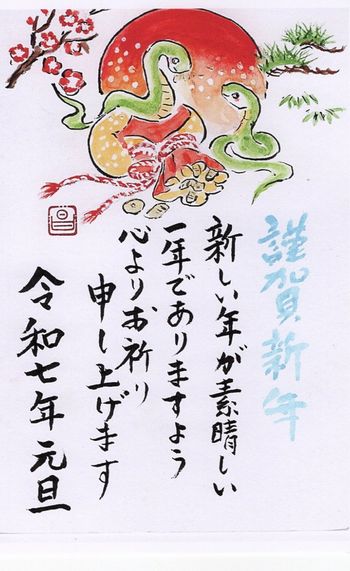 謹賀新年
新しい年が素晴しい
一年でありますよう
心よりお祈り
申し上げます
令和七年元旦